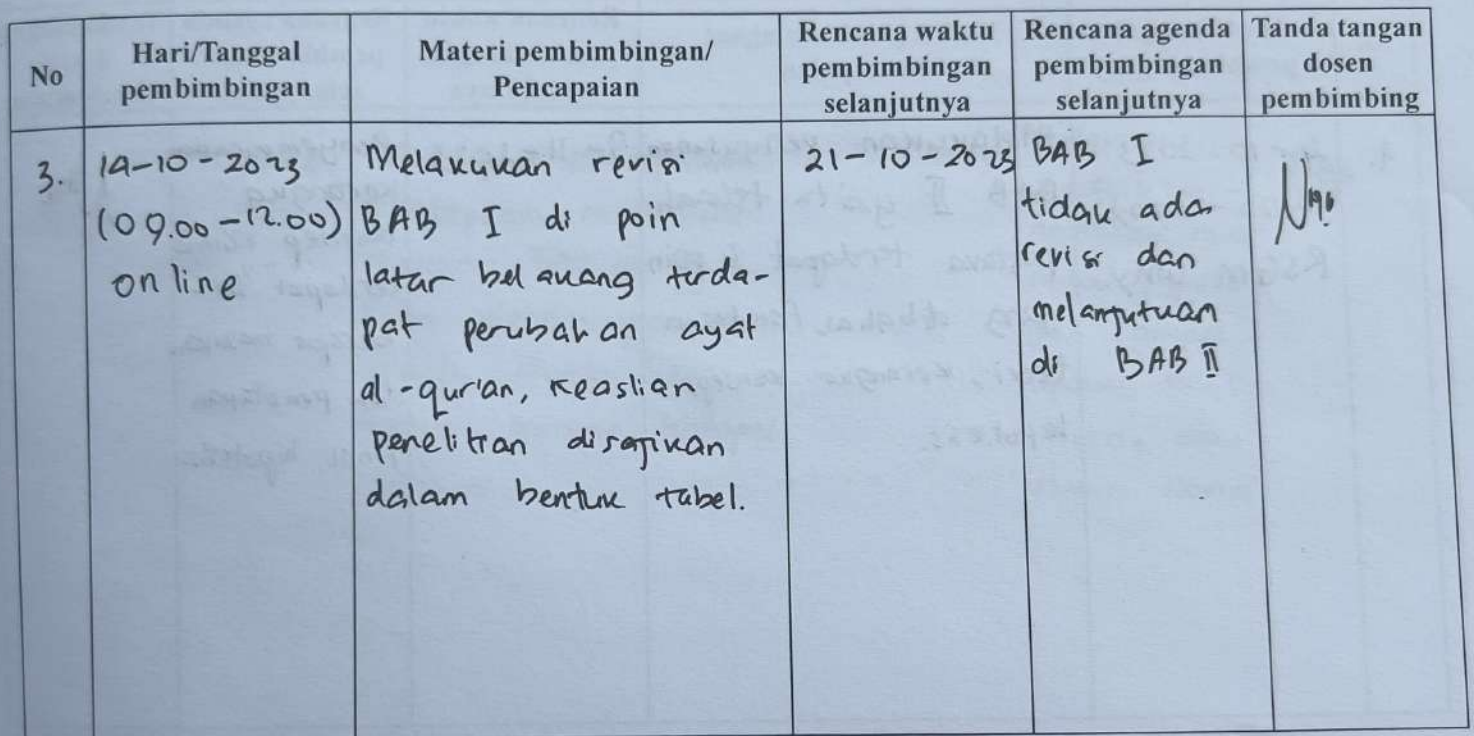 No
Hari/Tanggal
pembimbingan
Materi pembimbingan/
Pencapaian
Rencana waktu
pembimbingan
selanjutnya
Rencana agenda
pembimbingan
selanjutnya
Tanda tangan
dosen
pembimbing
3.
14-10-2023
(09.00-12.00)
online
Melakukan revisi
BAB I di poin
latar belakang terda-
pat perubahan ayat
al-qur'an, keaslian
penelitian disajikan
dalam bentuk tabel.
21-10-2023
BAB I
tidak ada
revisi dan
melanjutkan
di BAB II